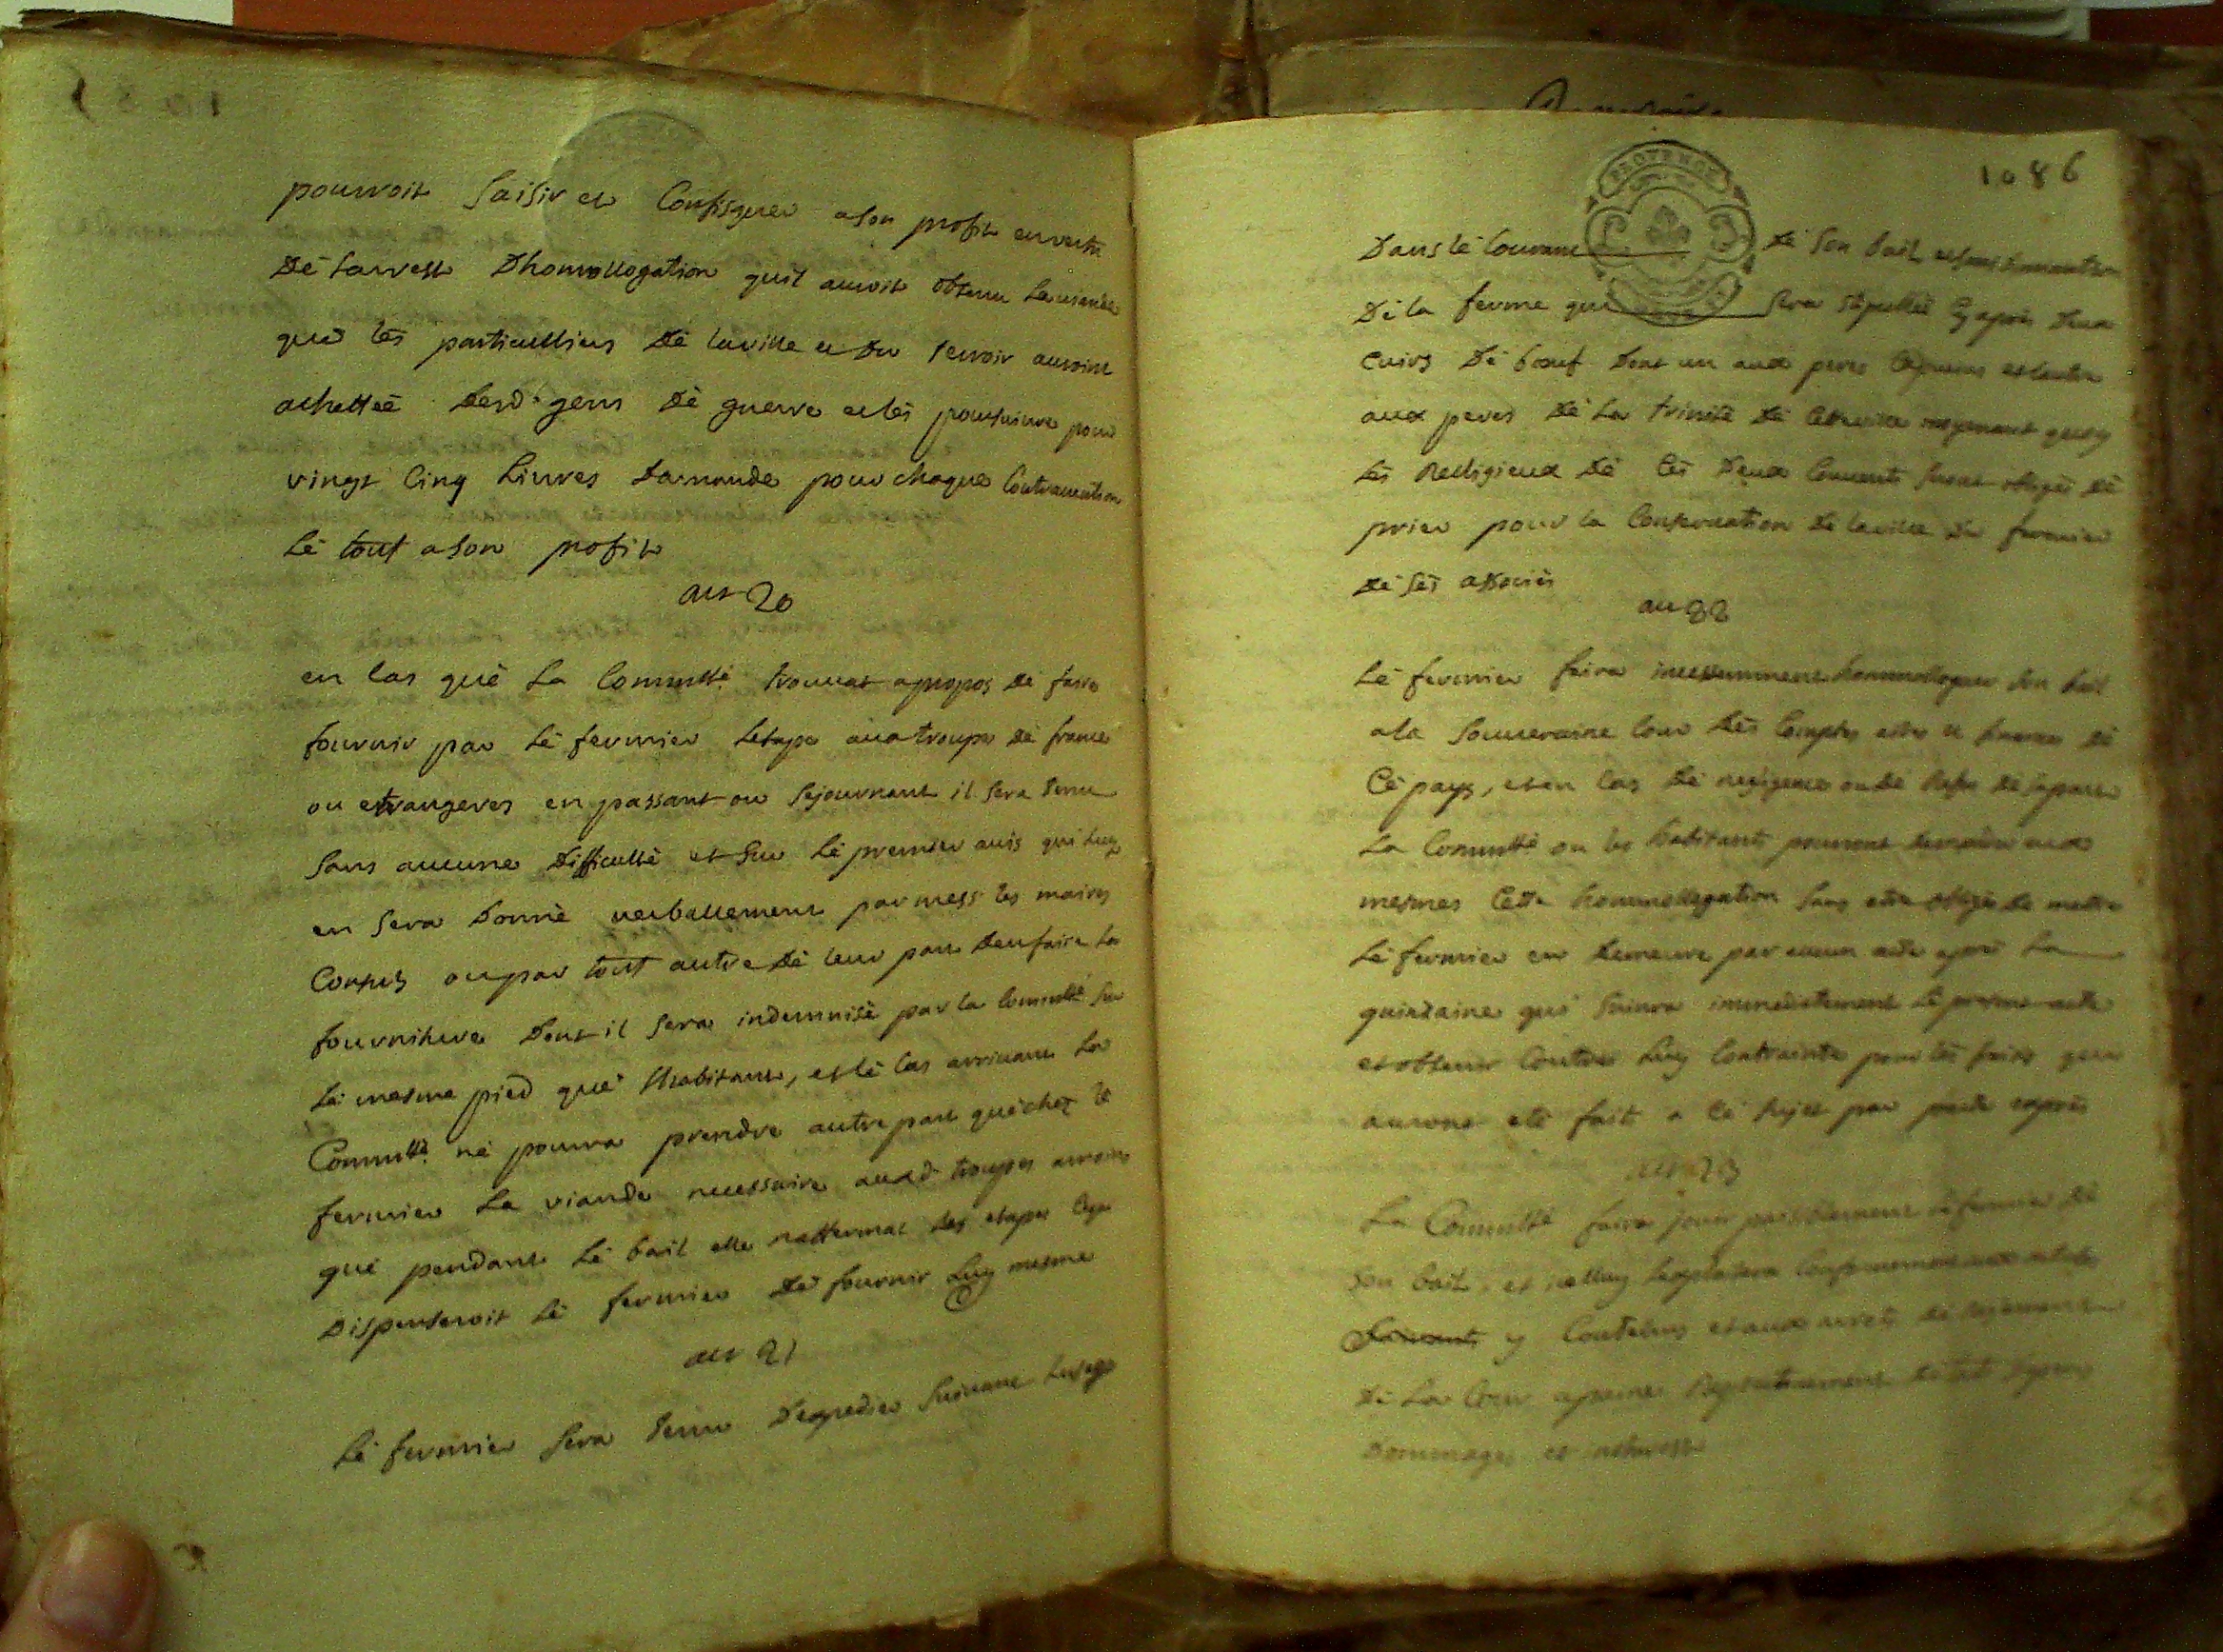 pourroit saisir et Confisquer a son profit en vertu
de larrest Dhomollogation quil auroit obtenu la viande
que les particulliers de la ville et du terroir auroint
achettée desd. gens de guerre et les poursuivre pour
vingt Cinq Livres damande pour chaque Contravention
Le tout a son profit
art 20
en Cas que La Commtté. trouvat apropos de faire
fournir par le fermier letape aux troupes de france
ou etrangeres en passant ou sejournant il sera tenu
sans aucune difficulté et sur le premier avis qui luy
en sera donné verballement par mess. les maires
Consuls ou par tout autre de leur part den faire la
fourniture dont il sera indemnisé par la Commtté sur
le mesme pied que lhabitant, et le cas arrivant la
Commtté. ne pourra prendre autre part que chez le
fermier la viande necessaire auxd. troupes a moins
que pendant le bail elle naffermat les etapes Ce qui
dispenseroit le fermier de fournir Luy mesme
art 21
Le fermier sera tenu dexpedier suivant lusage
PROVENCE
1086
Dans le Courant de son bail
de la ferme qui sera stipullée Cy apres deux
Cuirs de boeuf dont un aux peres Capucins et lautre
aux peres de la trinité de Cette ville moyenant quoy
les Relligieux de Ces deux Couvents seront obligés de
prier pour la Conservation de la ville du fermier
de ses associés
art 22
Le fermier faira incessamment hommolloguer son bail
a la souveraine Cour des Comptes aides et finances de
Ce pays, et en Cas de negligence ou de refus de sa part
La Commtté ou les habitants pourront
mesmes Cette hommollogation sans etre obligés de mettre
le fermier en demeure par aucun acte apres la
quinzaine qui suivra immediatement le present acte
et obtenir Contre Luy Contrainte pour les frais qui
auront eté fait a Ce sujet par
art 23
La Commtté faira jouir paisiblement le fermier de
son bail, et icelluy lexploitera Conformement aux articles
y Contenus et aux arrets de reglement
de la Cour a peine Respectivement de tous depens
dommages et interests